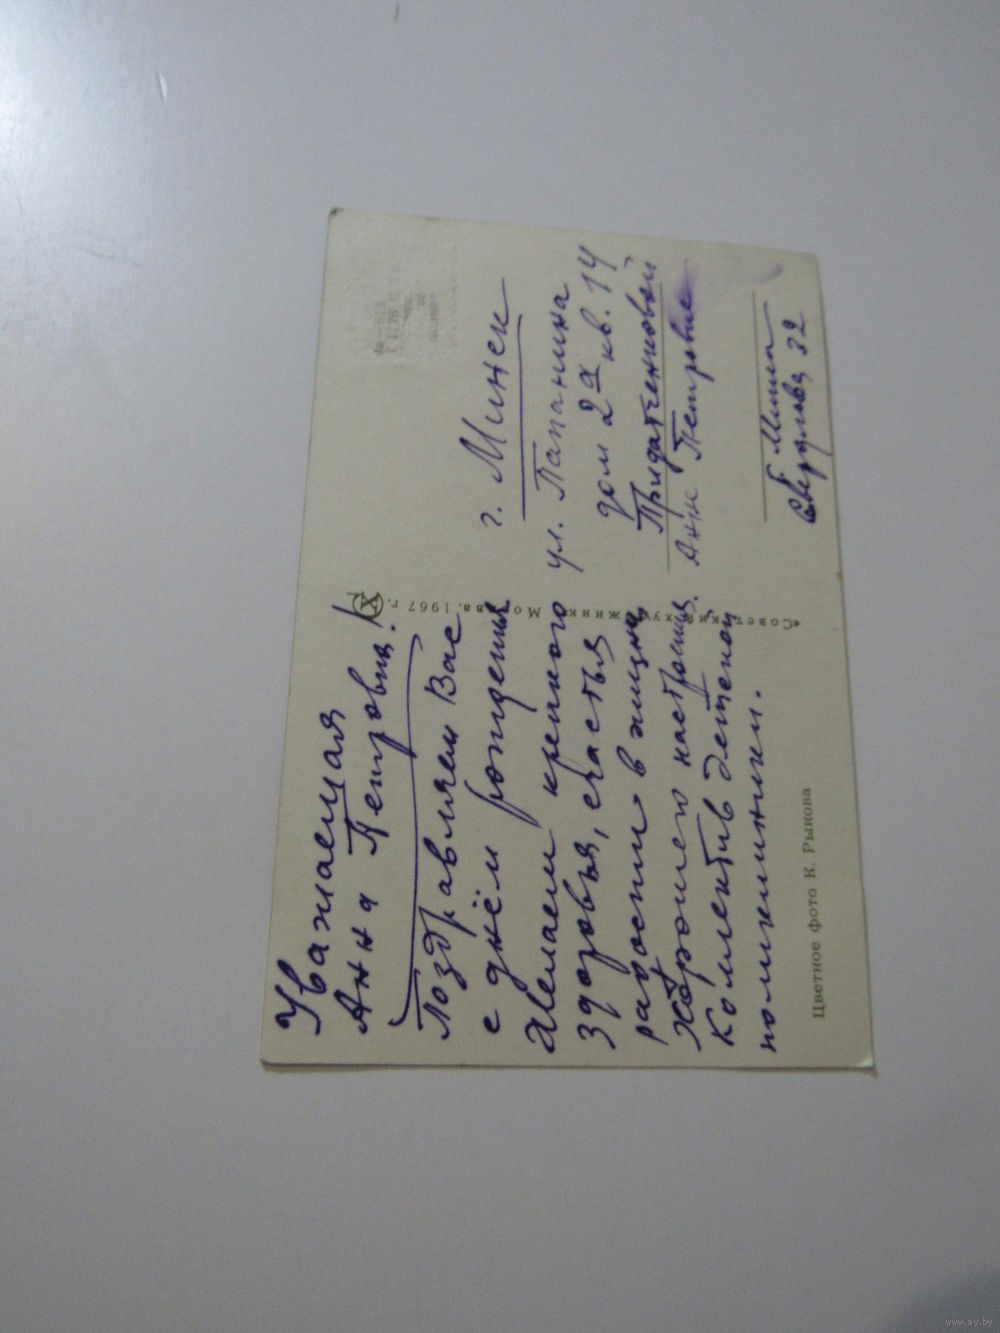 Уважаемая
Анна Петровна!
Поздравляем Вас
с днём рождения
Желаем крепкого
здоровья, счастья
радости в жизни,
хорошего настроения.
Коллектив детской
поликлиники.
Цветное фото К. Рыкова
«Советский художник» Москва. 1967 г.
г. Минск
ул. Папанина
дом 2а кв. 14
Придатченковой
Анне Петровне
г. Минск
Свердлова 32
www.ay.by